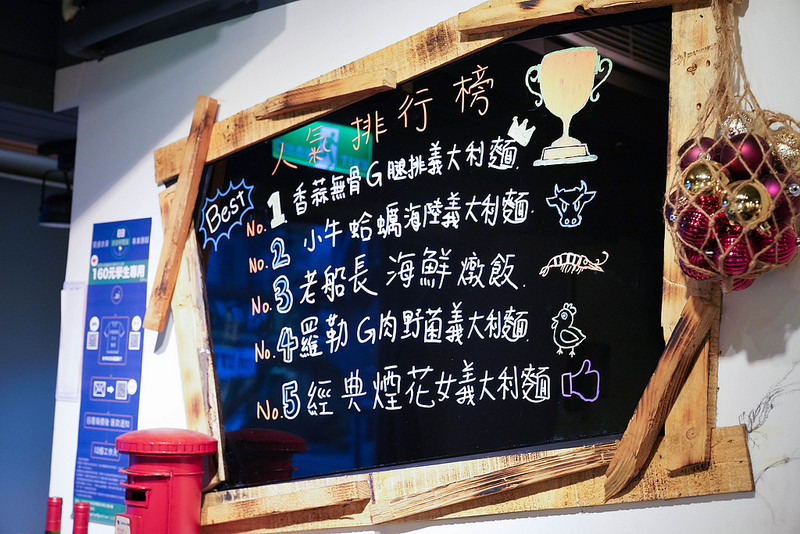 人氣排行榜
Best
No.1 香蒜無骨G腿排義大利麵.
No.2 小牛蛤蠣海陸義大利麵.
No.3 老船長 海鮮燉飯.
No.4 羅勒G肉野菌義大利麵.
No.5 經典煙花女義大利麵
160元學生專用